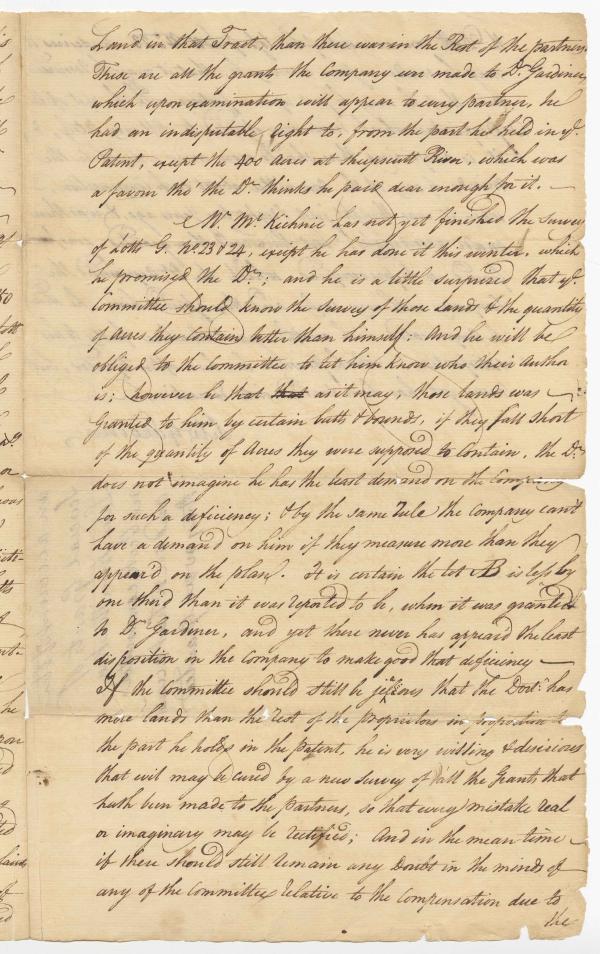 Land in that Tract than there was in the Rest of the partners
These are all the grants the Company ever made to Dr. Gardiner,
which upon examination will appear to every partner, he
had an indisputable right to, from the part he held in ye.
Patent, except the 400 Acres at Sheepscutt River, which was
a favour tho' the Dr. thinks he paid dear enough for it. —
Mr. McKechnie has not yet finished the Survey
of Lotts G. No. 23 & 24, except he has done it this winter, which
he promised the Dr.; and he is a little surprized that ye.
Committee should know the survey of those Lands & the quantity
of Acres they Contain better than himself: And he will be
obliged to the Committee to let him know who their Author
is; however be that that as it may, those lands was
Granted to him by certain butts & bounds, if they fall short
of the quantity of Acres they were supposed to Contain, the Dr.
does not imagine he has the least demand on the Company
for such a deficiency; & by the same rule the Company can't
have a demand on him if they measure more than they
appear'd on the plan. It is certain the lot B is less by
one third than it was reported to be, when it was granted
to Dr. Gardiner, and yet there never has appeard the least
disposition in the Company to make good that deficiency —
If the Committee should still be jealous that the Doctr. has
more lands than the rest of the proprietors in proportion to
the part he holds in the Patent, he is very willing & desirious
that evil may be cured by a new Survey of all the Grants that
hath been made to the Partners, so that every mistake real
or imaginary may be rectified; And in the mean time
if there should still remain any Doubt in the minds of
any of the Committee relative to the Compensation due to
the